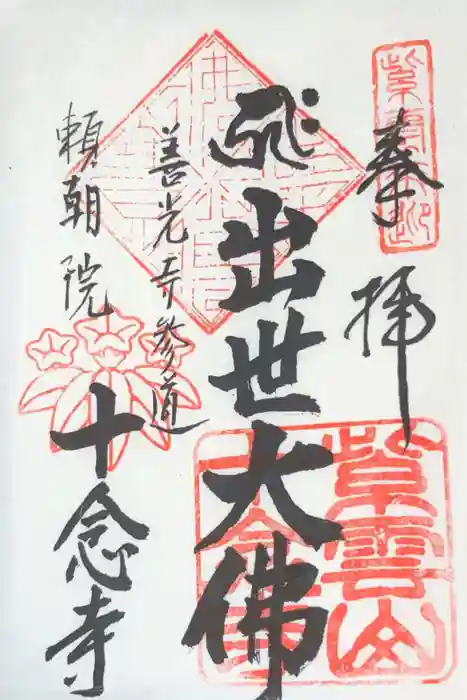 奉拝
出世大佛
善光寺参道
頼朝院
十念寺
紫雲山